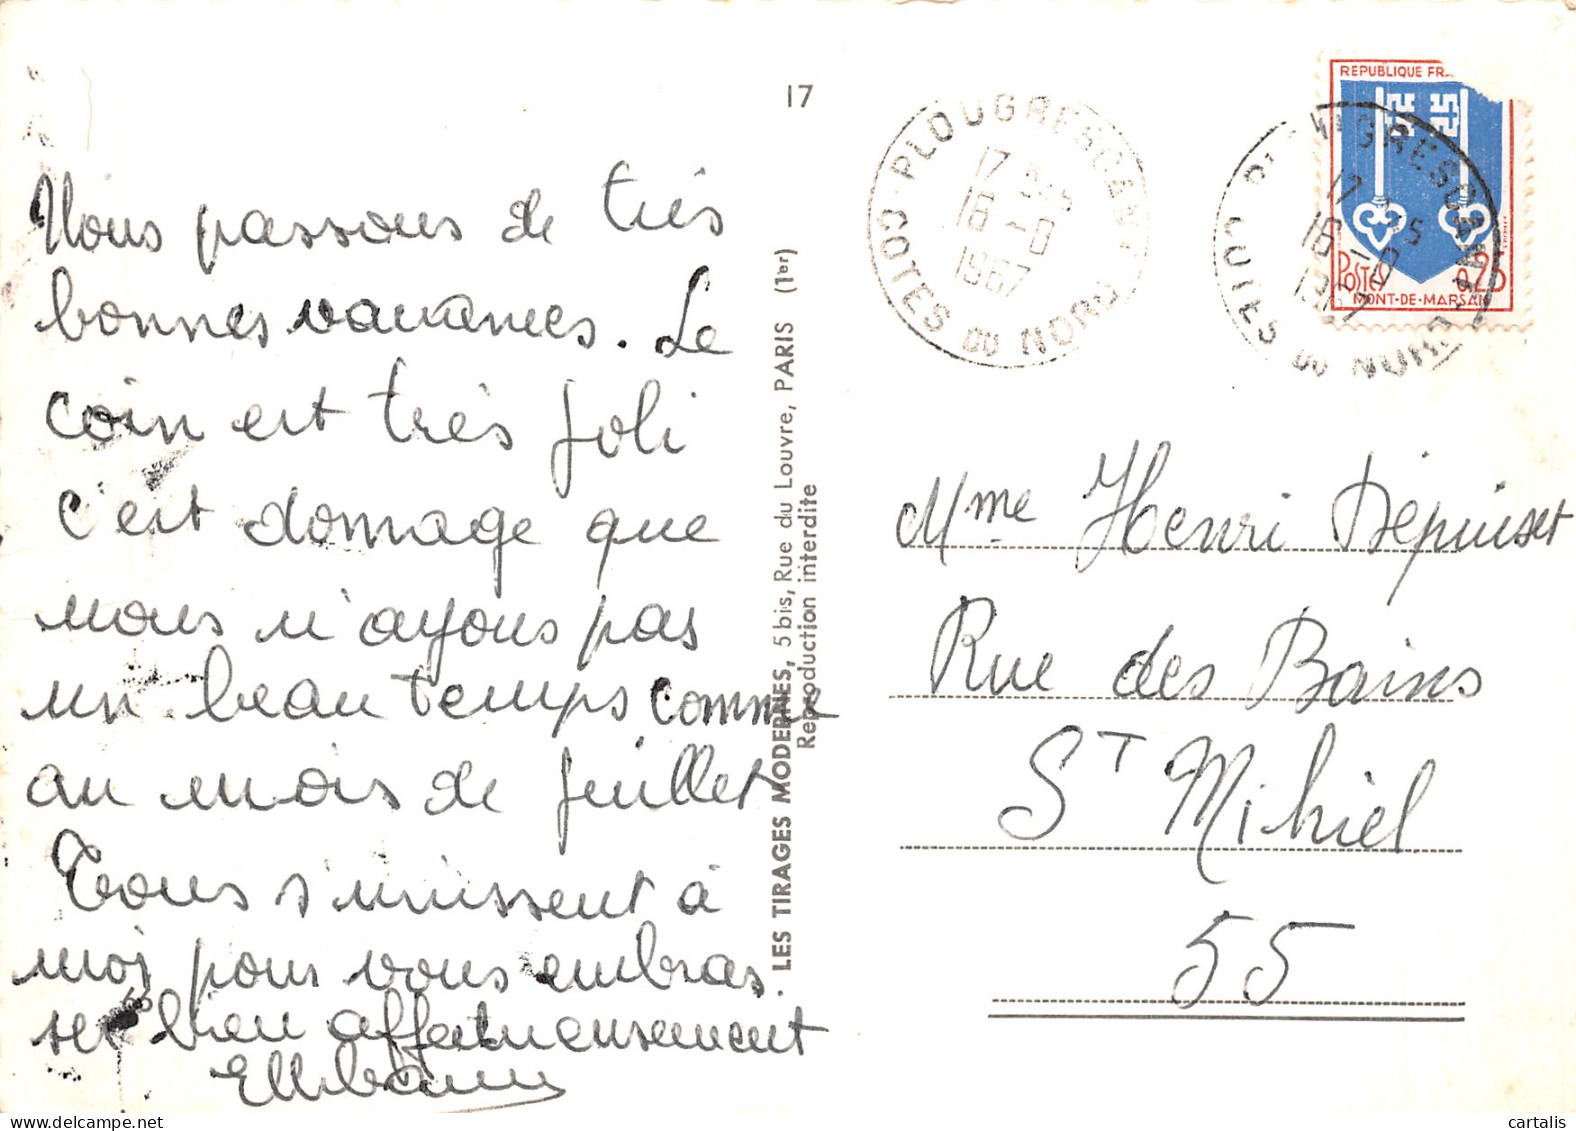 17
Nous passons de très
bonnes vacances. Le
coin est très joli
c'est domage que
nous n'ayons pas
un beau temps comme
au mois de juillet
Tous s'unissent à
moi pour vous embras.
ser bien affectueusement
LES TIRAGES MODERNES, 5 bis, Rue du Louvre, PARIS (1er)
Reproduction interdite
PLOUGRESCANT
17
16 - 8
1967
COTES DU NORD
REPUBLIQUE FR
POSTES 0,25
MONT-DE-MARSAN
17
16 - 8
1967
COTES DU NORD
Mme Henri Dépuiset
Rue des Bains
ST Mihiel
55
cartalis